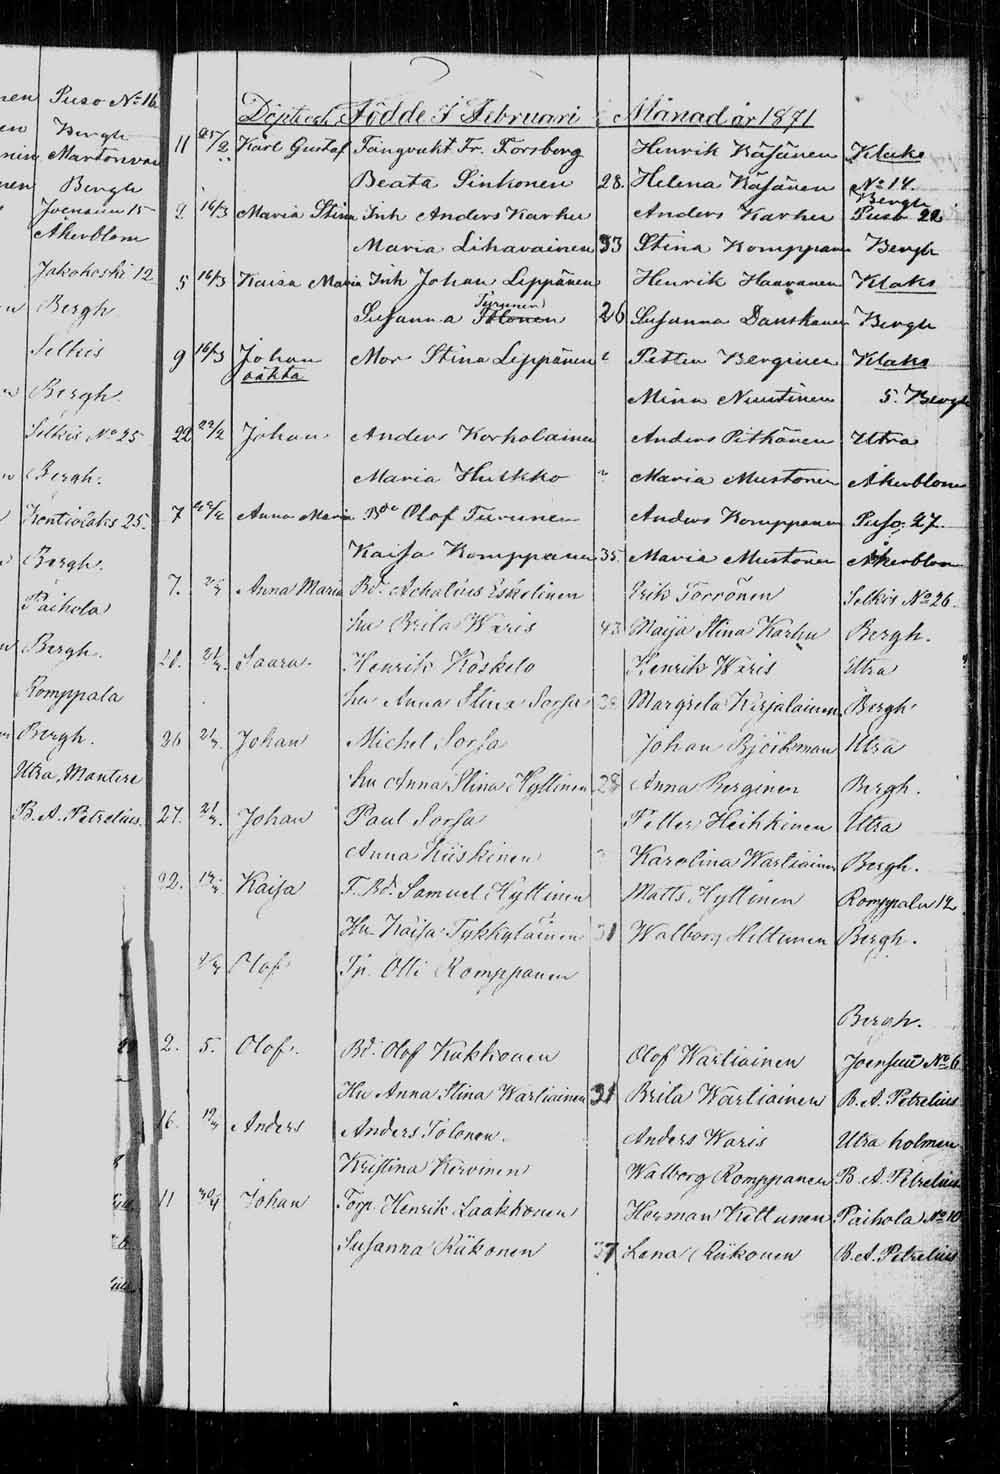 Puso No 16
Bergh
Martonvaa
Bergh
Joensuu 15
Åkerblom
Jakokoski 12
Bergh
Selkis
Bergh.
Selkis No 25
Bergh.
Kontiolaks 25.
Bergh.
Paihola
Bergh.
Romppala
Bergh.
Utra, Mantere
B. A. Petrelius.
Döpte och Födde i Februari Månad år 1871
11 25/2 Karl Gustaf Fångvakt Fr. Forsberg Henrik Käsänen Klaks
Beata Sinkonen 28. Helena Käsänen No 14. Bergh
2 14/3 Maria Stina Inh Anders Karhu Anders Karhu Puso 22
Maria Lihavainen 33 Stina Komppanen Bergh
5 16/3 Kaisa Maria Inh Johan Leppänen Henrik Haavanen Klaks
Susanna Tolonen Turunen 26 Susanna Danskanen Bergh
9 16/3 Johan Mor Stina Leppänen Petter Berginen Klaks
oäkta Mina Nuutinen 5. Bergh
22 22/2 Johan Anders Korholainen Anders Pitkänen Utra
Maria Hukko Maria Mustonen Åkerblom
7 Anna Maria Bde Olof Turunen Anders Komppanen Puso. 27.
Kaisa Komppanen 35. Maria Mustonen Åkerblom
7. Anna Maria Bd. Achatius Eskelinen Erik Törrönen Selkis No 26.
hu Brita Waris 43 Maija Stina Karhu Bergh.
Saara. Henrik Koskelo Henrik Waris Utra
hu Anna Stina Sorsa Margreta Karjalainen Bergh
26 Johan Michel Sorsa Johan Björkman Utra
hu Anna Stina Hyttinen 28 Anna Berginen Bergh.
27. Johan Paul Sorsa Petter Heikkinen Utra
Anna Kiiskinen Karolina Wartiainen Bergh.
22. Kaisa T. Bd. Samuel Hyttinen Matts Hyttinen Romppala 12
Hu Kaisa Tykkyläinen 31 Walborg Hiltunen Bergh.
Olof Tp. Olli Romppanen
Bergh.
2. 5. Olof. Bd. Olof Kukkonen Olof Wartiainen Joensuu No 6
Hu Anna Stina Wartiainen 31 Brita Wartiainen B. A. Petrelius
16. Anders Anders Tolonen. Anders Waris Utra holmen
Kristina Kervinen Walborg Romppanen B. A. Petrelius
11 30/4 Johan Torp. Henrik Laakkonen Herman Kettunen Paihola No 10
Susanna Riikonen 37 Lena Riikonen B. A. Petrelius